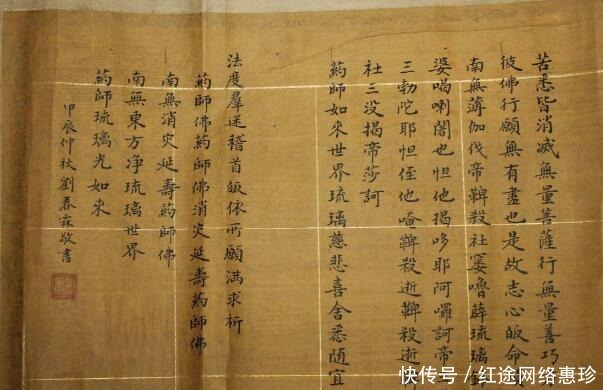 苦悉皆消滅無量菩薩行無量善巧
彼佛行願無有盡也是故志心皈命
南無薄伽伐帝鞞殺社窶嚕薜琉璃
婆喝喇闍也怛他揭哆耶阿囉訶帝
三勃陀耶怛侄他唵鞞殺逝鞞殺逝
社三没揭帝莎訶
藥師如來世界琉璃慈悲喜舍悉随宜
法度羣迷稽首皈依所願满求祈
藥師佛藥師佛消災延壽藥師佛
南無消災延壽藥師佛
南無東方净琉璃世界
藥師琉璃光如來
甲辰仲秋劉春霖敬書
快传号 / 红途网络惠珍